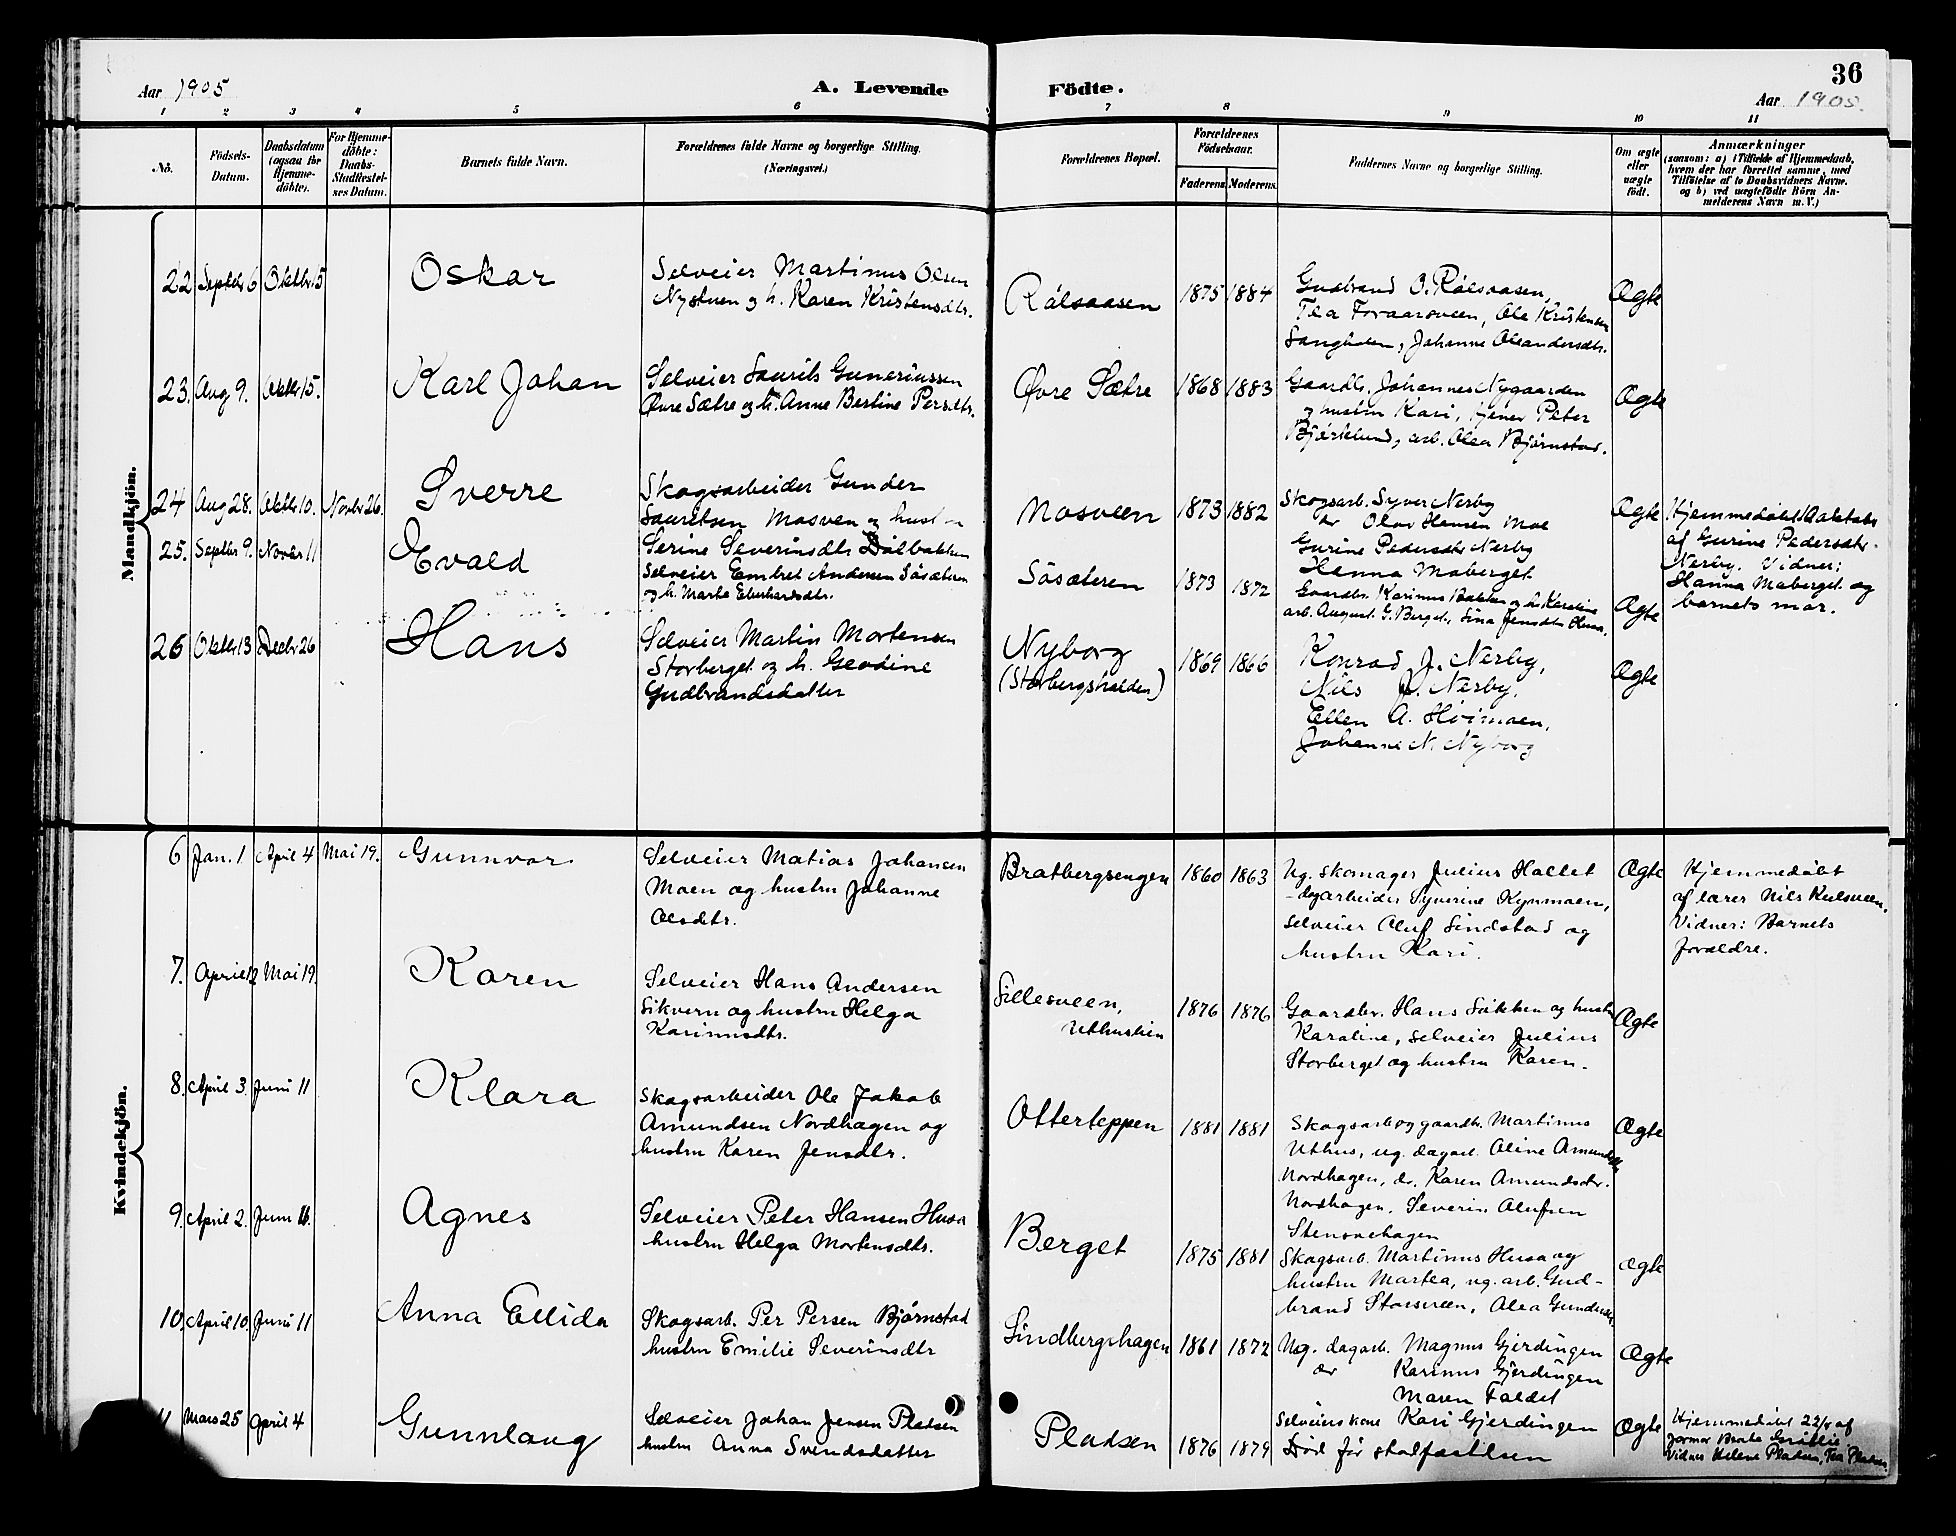 36
Aar 1905
A. Levende Födte.
Aar 1905.
1 2 3 4 5 6 7 8 9 10 11
No.
Födsels-
Datum.
Daabsdatum
(ogsaa for
Hjemme-
döbte).
For Hjemme-
döbte:
Daabs-
Stadfæstel-
ses Datum.
Barnets fulde Navn.
Forældrenes fulde Navne og borgerlige Stilling.
(Næringsvei.)
Forældrenes Bopæl.
Forældrenes
Födselsaar.
Faderens Moderens
Faddernes Navne og borgerlige Stilling.
Om ægte
eller
uægte
födt.
Anmærkninger
(saasom: a) i Tilfælde af Hjemmedaab,
hvem der har forrettet samme, med
Tilföielse af to Daabsvidners Navne.
og b) ved uægtefödte Börn An-
melderens Navn m. V.)
Mandkjön.
22 Septbr 6 Oktbr 15
Oskar
Selveier Martinus Olsen
Nystuen og h. Karen Kristensdtr.
Rálsaasen
1875 1884
Gudbrand O. Rálsaasen,
Tea Foraarsveen, Ole Kristensen
Sangholen, Johanne Oleandersdtr.
Ægte
23. Aug 9. Oktbr 15.
Karl Johan
Selveier Laurits Guneriussen
Øvre Sætre og h. Anne Bertine Persdtr.
Øvre Sætre
1868 1883
Gaardbr. Johannes Nygaarden
og hustru Kari, tjener Peter
Bjørklund, arb. Olea Bjørnstad.
Ægte
24 Aug 28. Oktbr 10. Novbr 26.
Sverre
Skogsarbeider Gunder
Lauritsen Mosveen og hustru
Serine Severinsdtr Dølbakken
Mosveen
1873 1882
Skogsarb. Syver Nerby
dr Olav Hansen Moe
Gurine Pedersdtr Nerby
Hanna Maberget
Ægte
Hjemmedøbt
af Gurine Pedersdtr.
Nerby. Vidner:
Hanna Maberget og
barnets mor.
25. Septbr 9. Novbr 11
Evald
Selveier Embret Andersen Sösæteren
og h. Marte Eberhardsdtr.
Sösæteren
1873 1872
Gaardbr. Karinus Bakken og h. Karoline
arb. August G. Berget, Lina Jensdtr Husa.
Ægte
26 Oktbr 13 Decbr 26
Hans
Selveier Martin Mortensen
Storberget og h. Geodine
Gudbrandsdatter
Nyborg
(Storbergshalden)
1869 1866
Konrad J. Nerby,
Nils J. Nerby.
Ellen A. Hóimoen,
Johanne N. Nyborg
Ægte
Kvindekjön.
6 Jan. 1 April 4 Mai 19.
Gunnvor
Selveier Matias Johansen
Moen og hustru Johanne
Olsdtr.
Bratbergsengen
1860 1863
Ug. skomager Julius Hallet
dagarbeider Syverine Kynmoen,
selveier Oluf Lindstad og
hustru Kari.
Ægte
Hjemmedøbt
af lærer Nils Kulsveen.
Vidner: Barnets
forældre.
7. April 12 Mai 19.
Karen
Selveier Hans Andersen
Sikvern og hustru Helga
Karinusdtr.
Sillesveen,
Uthuslien
1876 1876
Gaardbr. Hans Løkken og hustr
Karoline, selveier Julius
Storberget og hustru Karen.
Ægte
8. April 3. Juni 11
Klara
Skogsarbeider Ole Jakob
Amundsen Nordhagen og
hustru Karen Jensdtr.
Otterteppen
1881 1881
Skogsarb og gaardbr. Martinus
Uthus, ug. dagarb. Oline Amundsdtr
Nordhagen, dr. Karen Amundsdtr.
Nordhagen, Severin Olufsen
Stensaehagen
Ægte
9. April 2. Juni 11.
Agnes
Selveier Peter Hansen Husa
hustru Helga Mortensdtr.
Berget
1875 1881
Skogsarb. Martinus Husa og
hustru Martea, ug. arb. Gud-
brand Storsveen, Olea Gundersdtr
Ægte
10. April 10. Juni 11
Anna Ellida
Skogsarb. Per Persen Bjørnstad
hustru Emilie Severinsdtr
Lindbergshagen
1861 1872
Ug. dagarb. Magnus Gjerdingen
dr Karinus Gjerdingen
Maren Faldet
Selveierskone Kari Gjerdingen
Ægte
Mars 25 April 4
Gunnlaug
Selveier Johan Jensen Pladsen
hustru Anna Svendsdatter
Pladsen
1876 1879
Død før stadfæstelsen
Ægte
Hjemmedøbt 22/4 af
Jormor Berte
Vidner Helene Pladsen, Tea Pladsen.